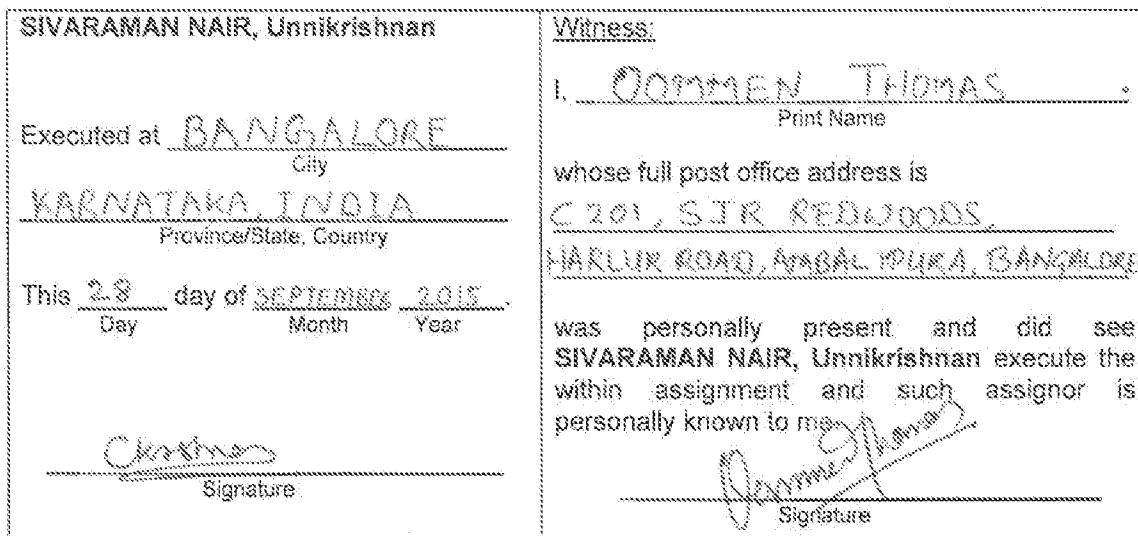 SIVARAMAN NAIR, Unnikrishnan
Executed at BANGALORE
City
KARNATAKA, INDIA
Province/State, Country
This 28 day of SEPTEMBER 2015.
Day Month Year
Signature
Witness:
I, OOMMEN THOMAS,
Print Name
whose full post office address is
C 201, SJR REDWOODS,
HARLUR ROAD, AMBALYPURA, BANGALORE
was personally present and did see
SIVARAMAN NAIR, Unnikrishnan execute the
within assignment and such assignor is
personally known to me
Oommen Thomas
Signature